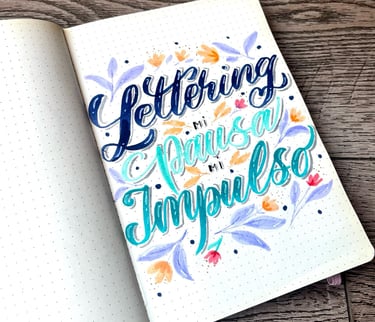 Lettering
mi
pausa
mi
Impulso